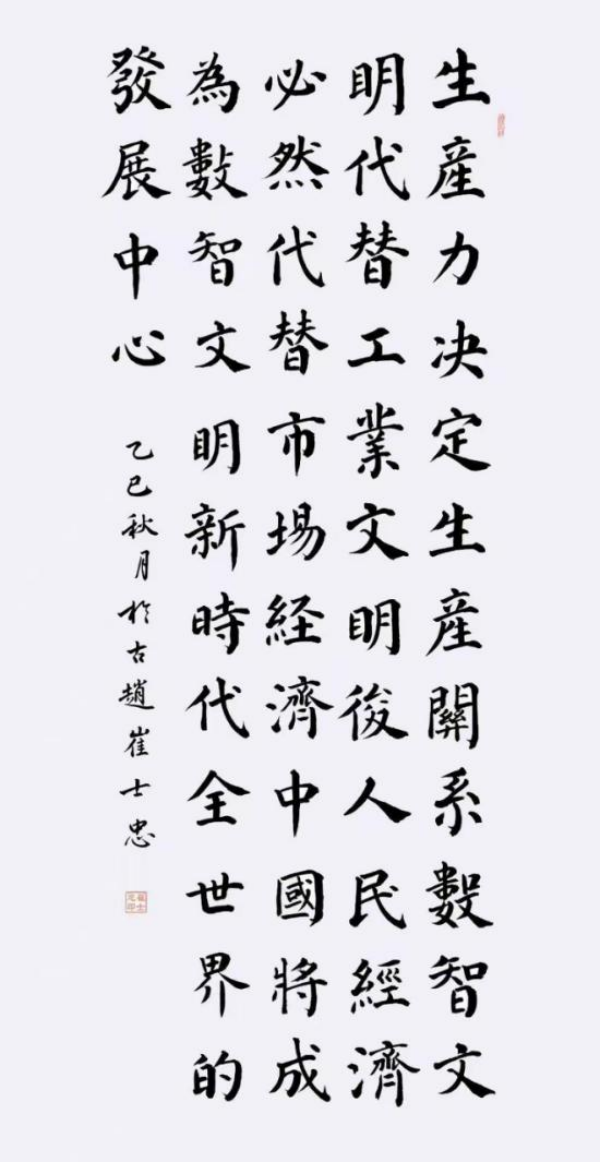 生產力决定生產關系數智文
明代替工業文明後人民經濟
必然代替市場経濟中國將成
為數智文明新時代全世界的
發展中心
乙巳秋月於古趙崔士忠